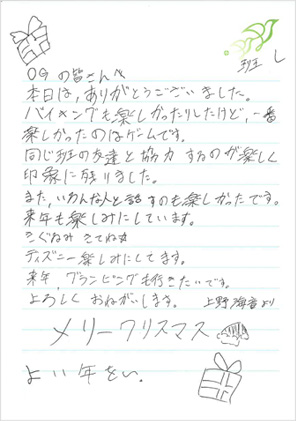 班 し
OGの皆さんへ
本日は,ありがとうございました。
バイキングも楽しかったりしたけど,一番
楽しかったのはゲームです。
同じ班の友達と協力 するのが楽しく
印象に残りました。
また,いろんな人と話すのも楽しかったです。
来年も楽しみにしています。
きてね
ディズニー楽しみにしてます。
来年,グランピングも行きたいです。
よろしく おねがいします。 上野 より
メリークリスマス
よい年をい。